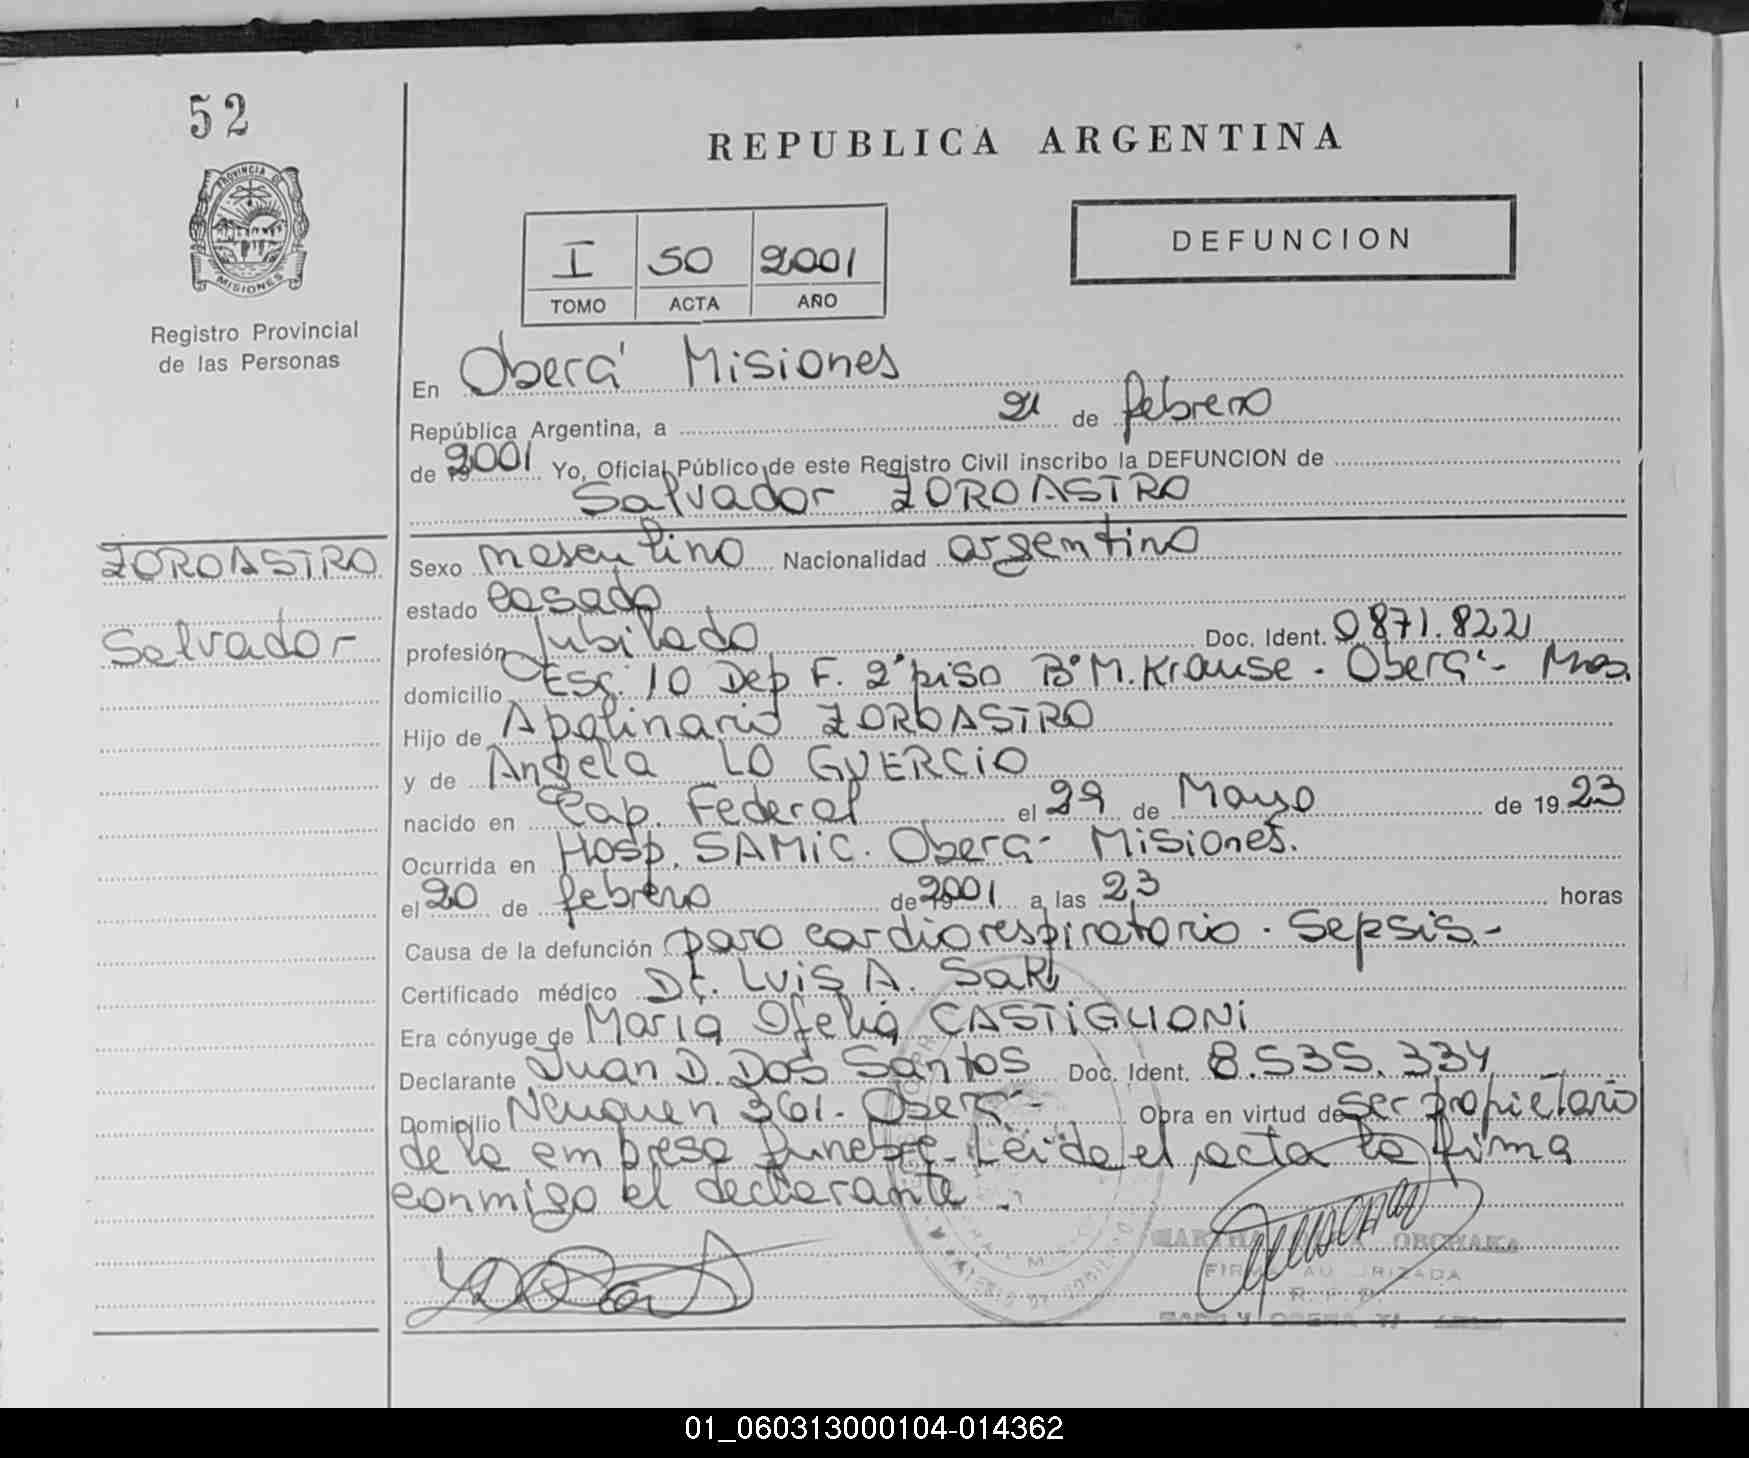 52
REPUBLICA ARGENTINA
PROVINCIA DE
MISIONES
Registro Provincial
de las Personas
I 50 2001
TOMO ACTA AÑO
DEFUNCION
En Oberá Misiones
República Argentina, a 21 de febrero
de 2001 Yo, Oficial Público de este Registro Civil inscribo la DEFUNCION de
Salvador ZOROASTRO
ZOROASTRO
Salvador
Sexo masculino Nacionalidad argentino
estado casado
profesión Jubilado Doc. Ident. 0871.822
domicilio Esc. 10 Dep F. 2° piso B° M. Krause - Oberá - Mnes.
Hijo de Apolinario ZOROASTRO
y de Angela LO GUERCIO
nacido en Cap. Federal el 29 de Mayo de 1923
Ocurrida en Hosp. SAMIC. Oberá - Misiones.
el 20 de febrero de 2001 a las 23 horas
Causa de la defunción paro cardiorespiratorio - Sepsis.-
Certificado médico Dr. Luis A. Sak
Era cónyuge de María Ofelia CASTIGLIONI
Declarante Juan D. Dos Santos Doc. Ident. 8.535.334
Domicilio Neuquen 361 - Oberá - Obra en virtud de ser propietario
de la empresa funebre - Leida el acta la firma
conmigo el declarante -
MARTHA
FIRMA AUTORIZADA
01_060313000104-014362